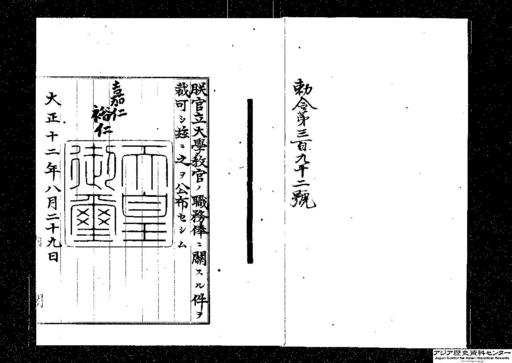 勅令第三百九十二號
朕官立大學教官ノ職務俸ニ關スル件ヲ
裁可シ玆ニ之ヲ公布セシム
嘉仁
裕仁
天皇
御璽
大正十二年八月二十九日
アジア歴史資料センター
Japan Center for Asian Historical Records